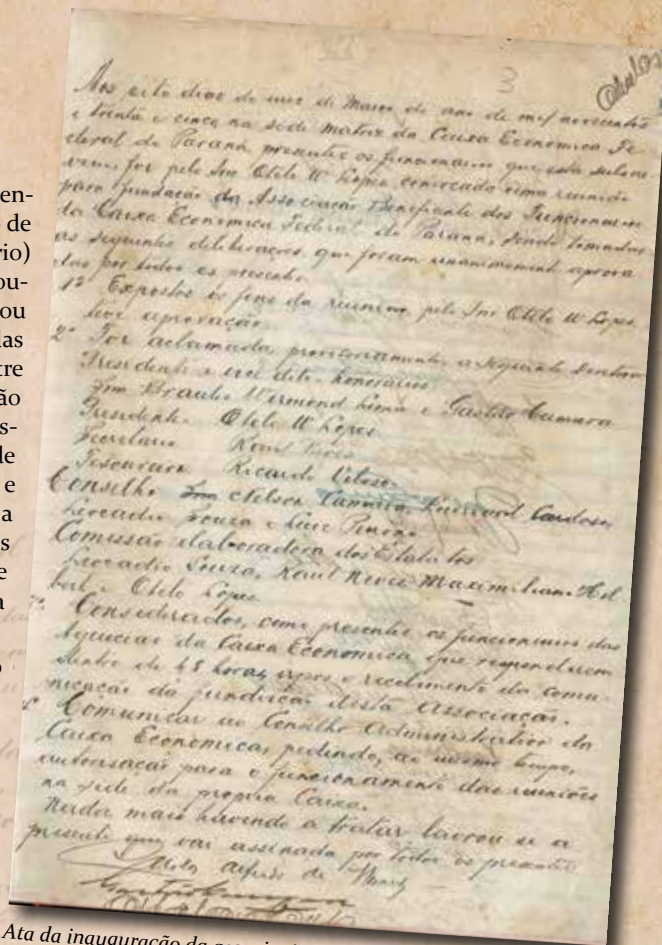 en-
de
rio)
ou-
ou
las
tre
ão
s-
de
e
a
s
e
a
o
3
Aos oito dias do mez de Março do ano de mil novecentos
e trinta e cinco na séde matriz da Caixa Economica Fe-
deral do Paraná, presentes os funcionarios que esta subscre-
vem foi pelo Snr Otelo W Lopes convocada uma reunião
para fundação da Associação Beneficente dos Funcionarios
da Caixa Economica Federal do Paraná, sendo tomadas
as seguintes deliberações que foram unanimemente aprova
das por todos os presentes.
1º Expostos os fins da reunião pelo Snr Otelo W Lopes
teve aprovação.
2º Foi aclamada, provisoriamente a seguinte
Presidente e vice dito honorarios
Snr Braulio Wirmond Lima e Gastão Camara
Presidente Otelo W Lopes
Secretario Raul
Tesoureiro Ricardo
Conselho Snr Nelson Camara, Cardoso
Leocadio Souza e
Comissão elaboradora dos Estatutos
Leocadio Souza, Raul Maximiliano
e Otelo Lopes
Considerados, como presentes os funcionarios das
Agencias da Caixa Economica que responderem
dentro de 48 horas, apos o recebimento da comu-
nicação da fundação desta Associação.
Comunicar ao Conselho Administrativo da
Caixa Economica, pedindo, ao mesmo tempo,
autorisação para o funcionamento das reuniões
na séde da propria Caixa.
Nada mais havendo a tratar lavrou se a
presente que vai assinada por todos os presentes
Alfredo de
Ata da inauguração da